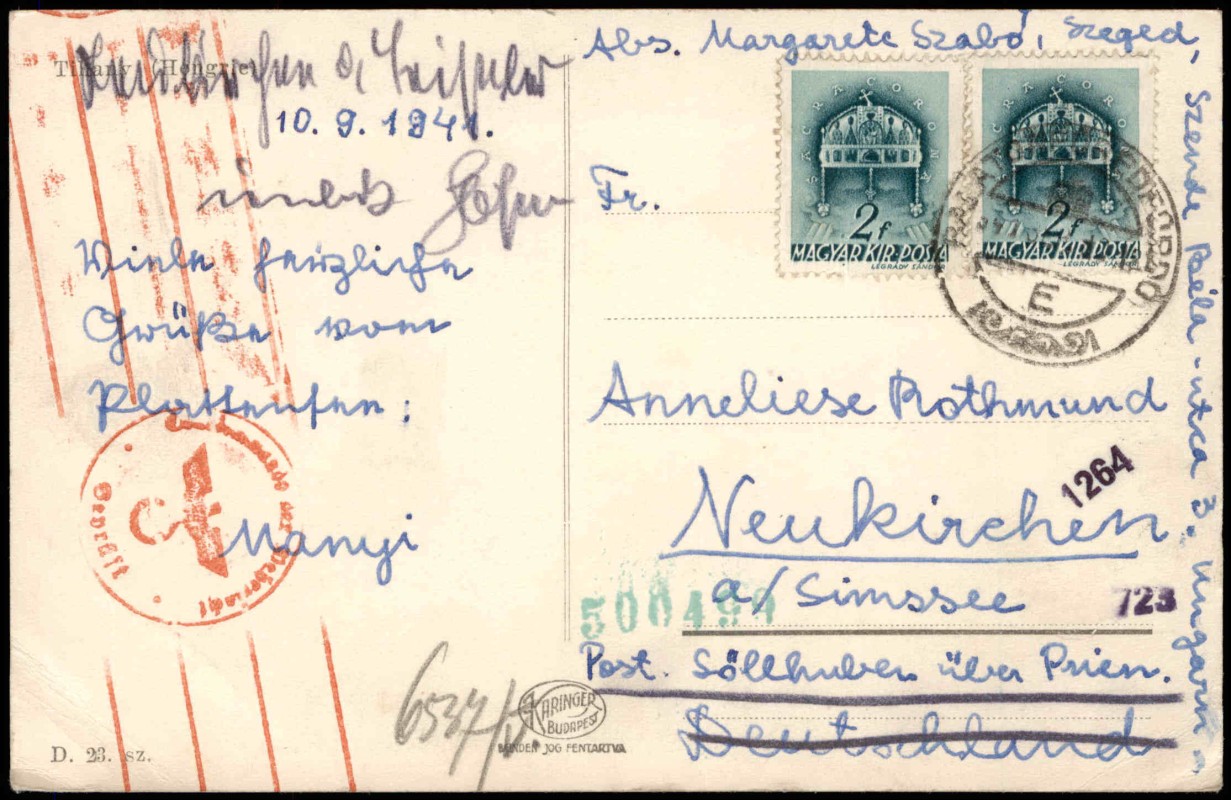 Tihany (Hongrie)
10. 9. 1941.
Viele herzliche
Grüße vom
Plattensee;
Manyi
Geprüft
Oberkommando der Wehrmacht
6537/V
D. 23. sz.
KARINGER
BUDAPEST
MINDEN JOG FENTARTVA
Abs. Margarete Szabó, Szeged,
Szende Béla-utca 3. Ungarn
SACRA CORONA
2f
MAGYAR KIR POSTA
LÉGRÁDY SÁNDOR
SACRA CORONA
2f
MAGYAR KIR POSTA
E
Fr.
Anneliese Rothmund
1264
Neukirchen
a/Simssee
723
Post. Söllhuben über Prien.
Deutschland